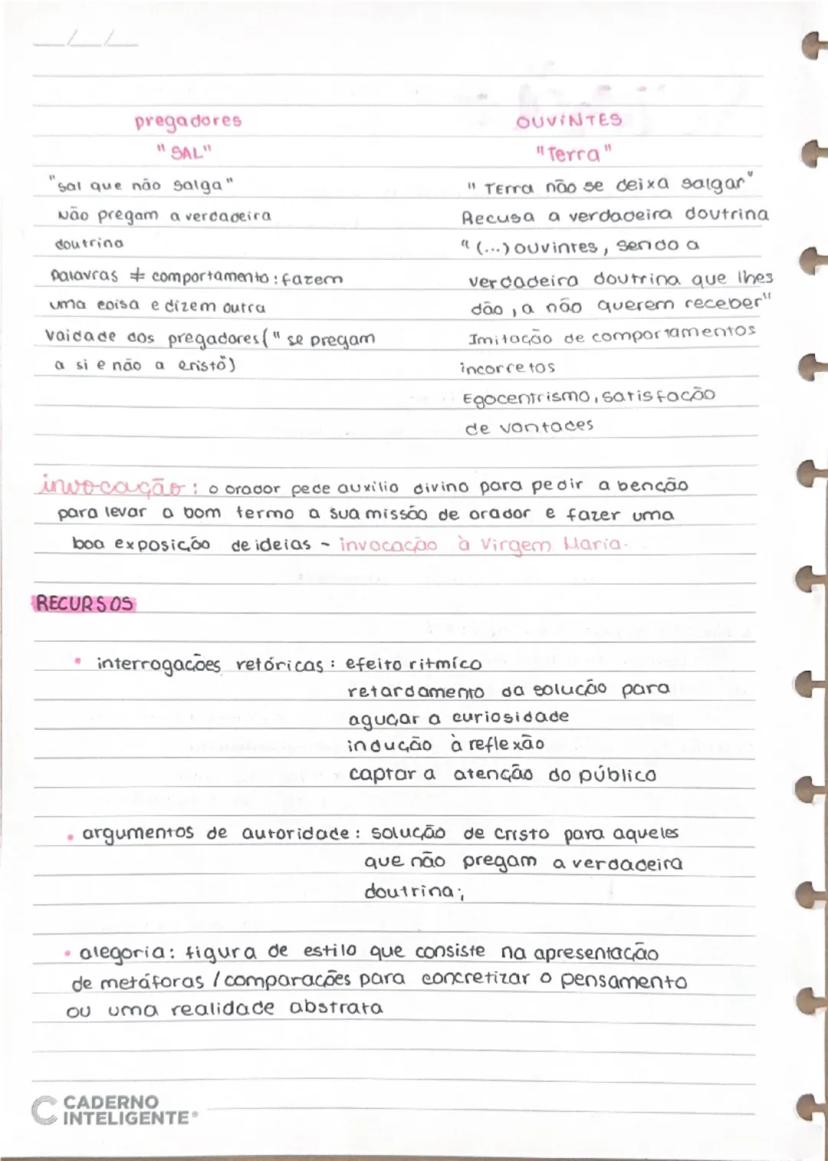 pregadores
"SAL"
"sal que não salga"
Não pregam a verdadeira
doutrina
palavras ≠ comportamento: fazem
uma coisa e dizem outra
vaidade dos pregadores (" se pregam
a si e não a cristo")
OUVINTES
"Terra"
"Terra não se deixa salgar"
Recusa a verdadeira doutrina
"(...) ouvintes, sendo a
verdadeira doutrina que lhes
dão, a não querem receber"
Imitação de comportamentos
incorretos
Egocentrismo, satisfação
de vontades
invocação: o orador pede auxílio divino para pedir a benção
para levar a bom termo a sua missão de orador e fazer uma
boa exposição de ideias - invocação à Virgem Maria.
RECURSOS
• interrogações retóricas: efeito ritmíco
retardamento da solução para
aguçar a curiosidade
indução à reflexão
captar a atenção do público
• argumentos de autoridade: solução de cristo para aqueles
que não pregam a verdadeira
doutrina;
• alegoria: figura de estilo que consiste na apresentação
de metáforas / comparações para concretizar o pensamento
ou uma realidade abstrata
CADERNO
INTELIGENTE®